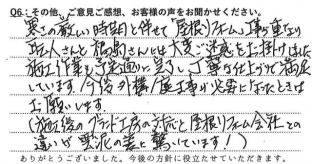 Q6：その他、ご意見ご感想、お客様の声をお聞かせください。
寒さの厳しい時期と併せて屋根リフォーム工事が重なり
さんと福島さんには大変ご迷惑を お掛けしました
施工作業も予定通りに完了し丁寧な仕上がりで満足
しています。今後外構工事が必要になったときは
お願いします
（施工後のグランド工房の対応と屋根リフォーム会社との
違いが雲泥の差に驚いています！）
ありがとうございました。今後の方針に役立たせていただきます。